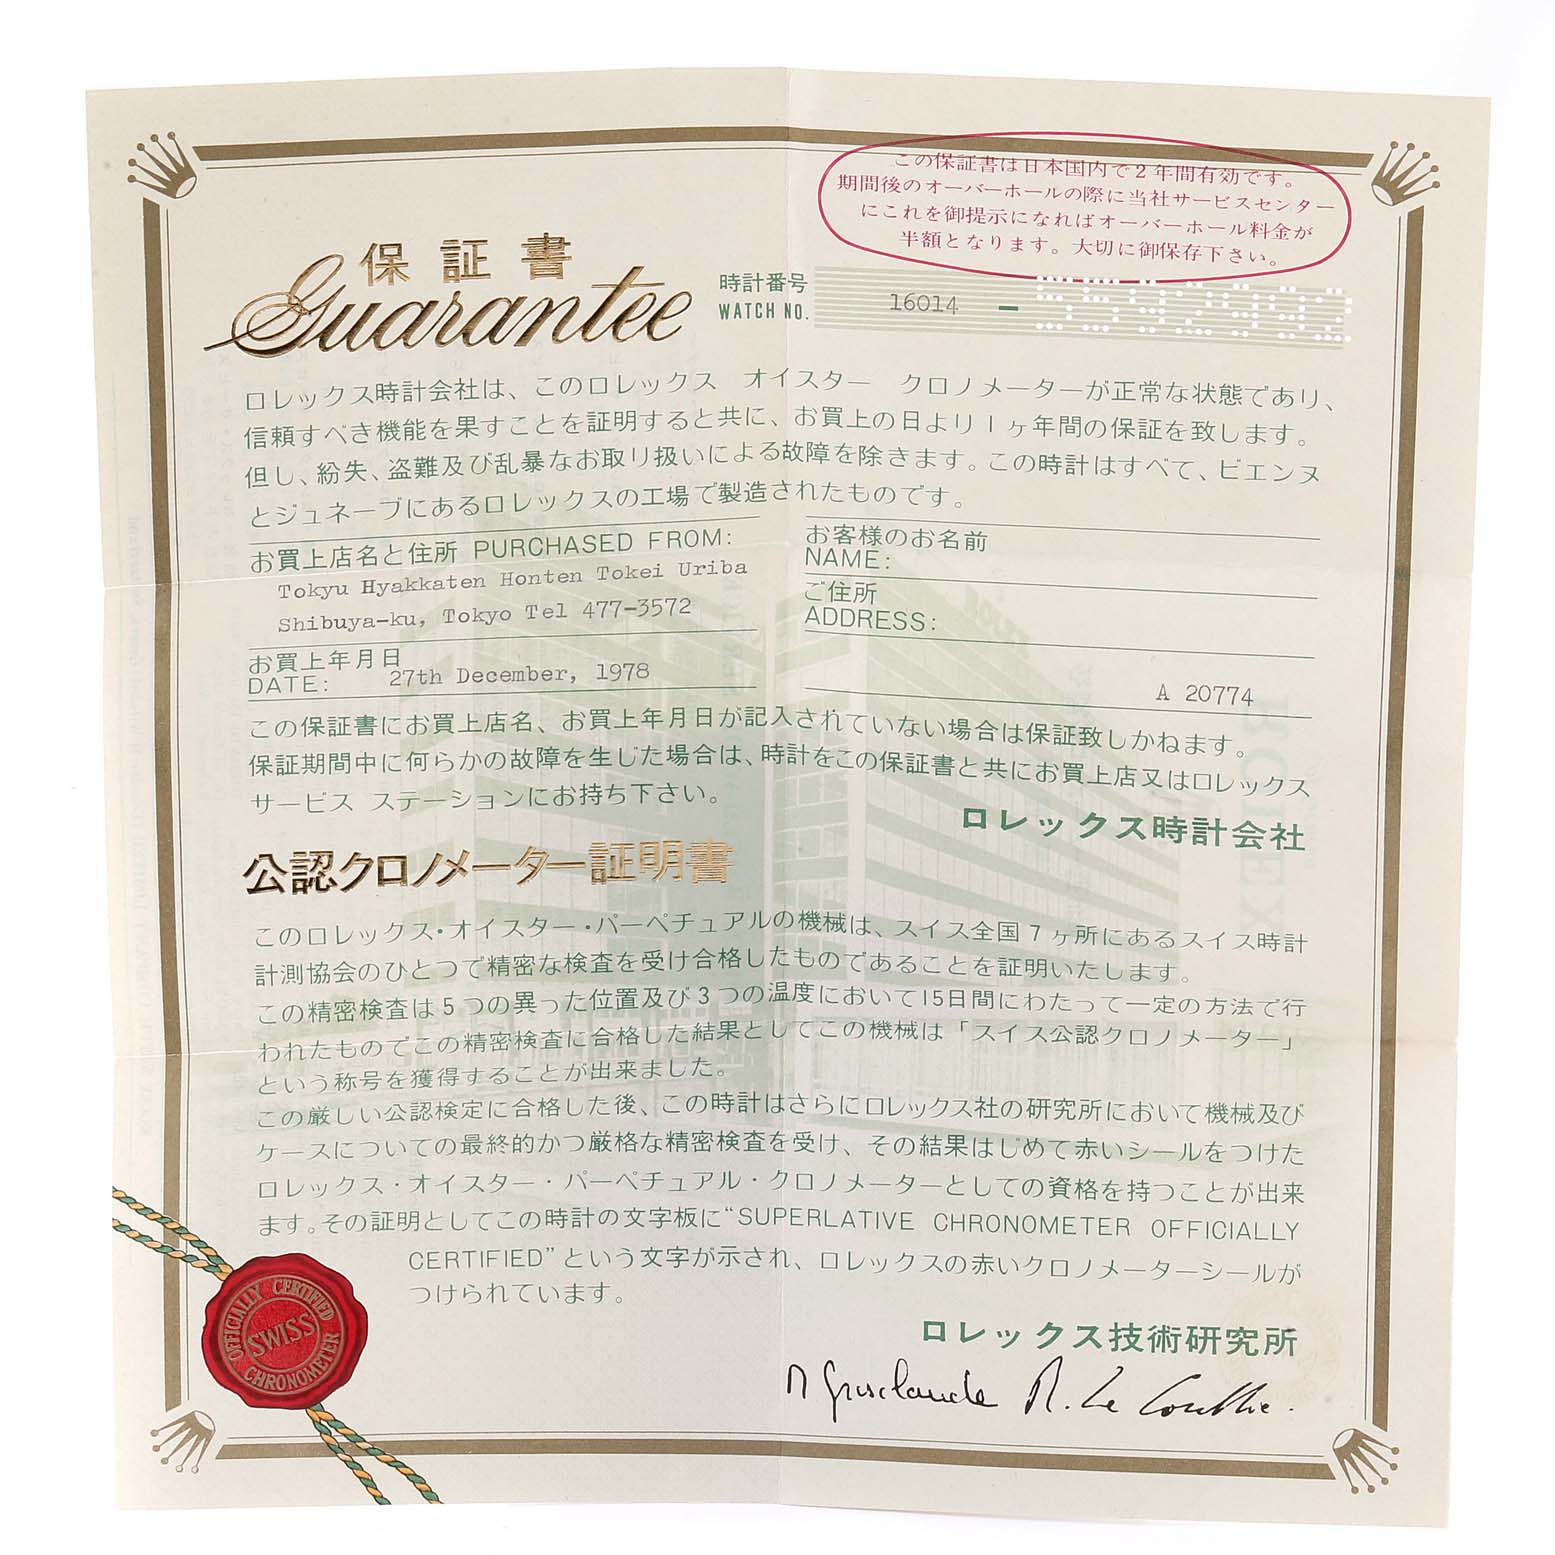 この保証書は日本国内で2年間有効です。
期間後のオーバーホールの際に当社サービスセンター
にこれを御提示になればオーバーホール料金が
半額となります。大切に御保存下さい。
保証書
Guarantee
時計番号
WATCH NO.
16014 –
ロレックス時計会社は、このロレックス オイスター クロノメーターが正常な状態であり、
信頼すべき機能を果すことを証明すると共に、お買上の日より1ヶ年間の保証を致します。
但し、紛失、盗難及び乱暴なお取り扱いによる故障を除きます。この時計はすべて、ビエンヌ
とジュネーブにあるロレックスの工場で製造されたものです。
お買上店名と住所 PURCHASED FROM:
Tokyu Hyakkaten Honten Tokei Uriba
Shibuya-ku, Tokyo Tel 477-3572
お買上年月日
DATE: 27th December, 1978
お客様のお名前
NAME:
ご住所
ADDRESS:
A 20774
この保証書にお買上店名、お買上年月日が記入されていない場合は保証致しかねます。
保証期間中に何らかの故障を生じた場合は、時計をこの保証書と共にお買上店又はロレックス
サービス ステーションにお持ち下さい。
ロレックス時計会社
公認クロノメーター証明書
このロレックス・オイスター・パーペチュアルの機械は、スイス全国7ヶ所にあるスイス時計
計測協会のひとつで精密な検査を受け合格したものであることを証明いたします。
この精密検査は5つの異った位置及び3つの温度において15日間にわたって一定の方法で行
われたものでこの精密検査に合格した結果としてこの機械は「スイス公認クロノメーター」
という称号を獲得することが出来ました。
この厳しい公認検定に合格した後、この時計はさらにロレックス社の研究所において機械及び
ケースについての最終的かつ厳格な精密検査を受け、その結果はじめて赤いシールをつけた
ロレックス・オイスター・パーペチュアル・クロノメーターとしての資格を持つことが出来
ます。その証明としてこの時計の文字板に“SUPERLATIVE CHRONOMETER OFFICIALLY
CERTIFIED”という文字が示され、ロレックスの赤いクロノメーターシールが
つけられています。
OFFICIALLY CERTIFIED
SWISS
CHRONOMETER
ロレックス技術研究所